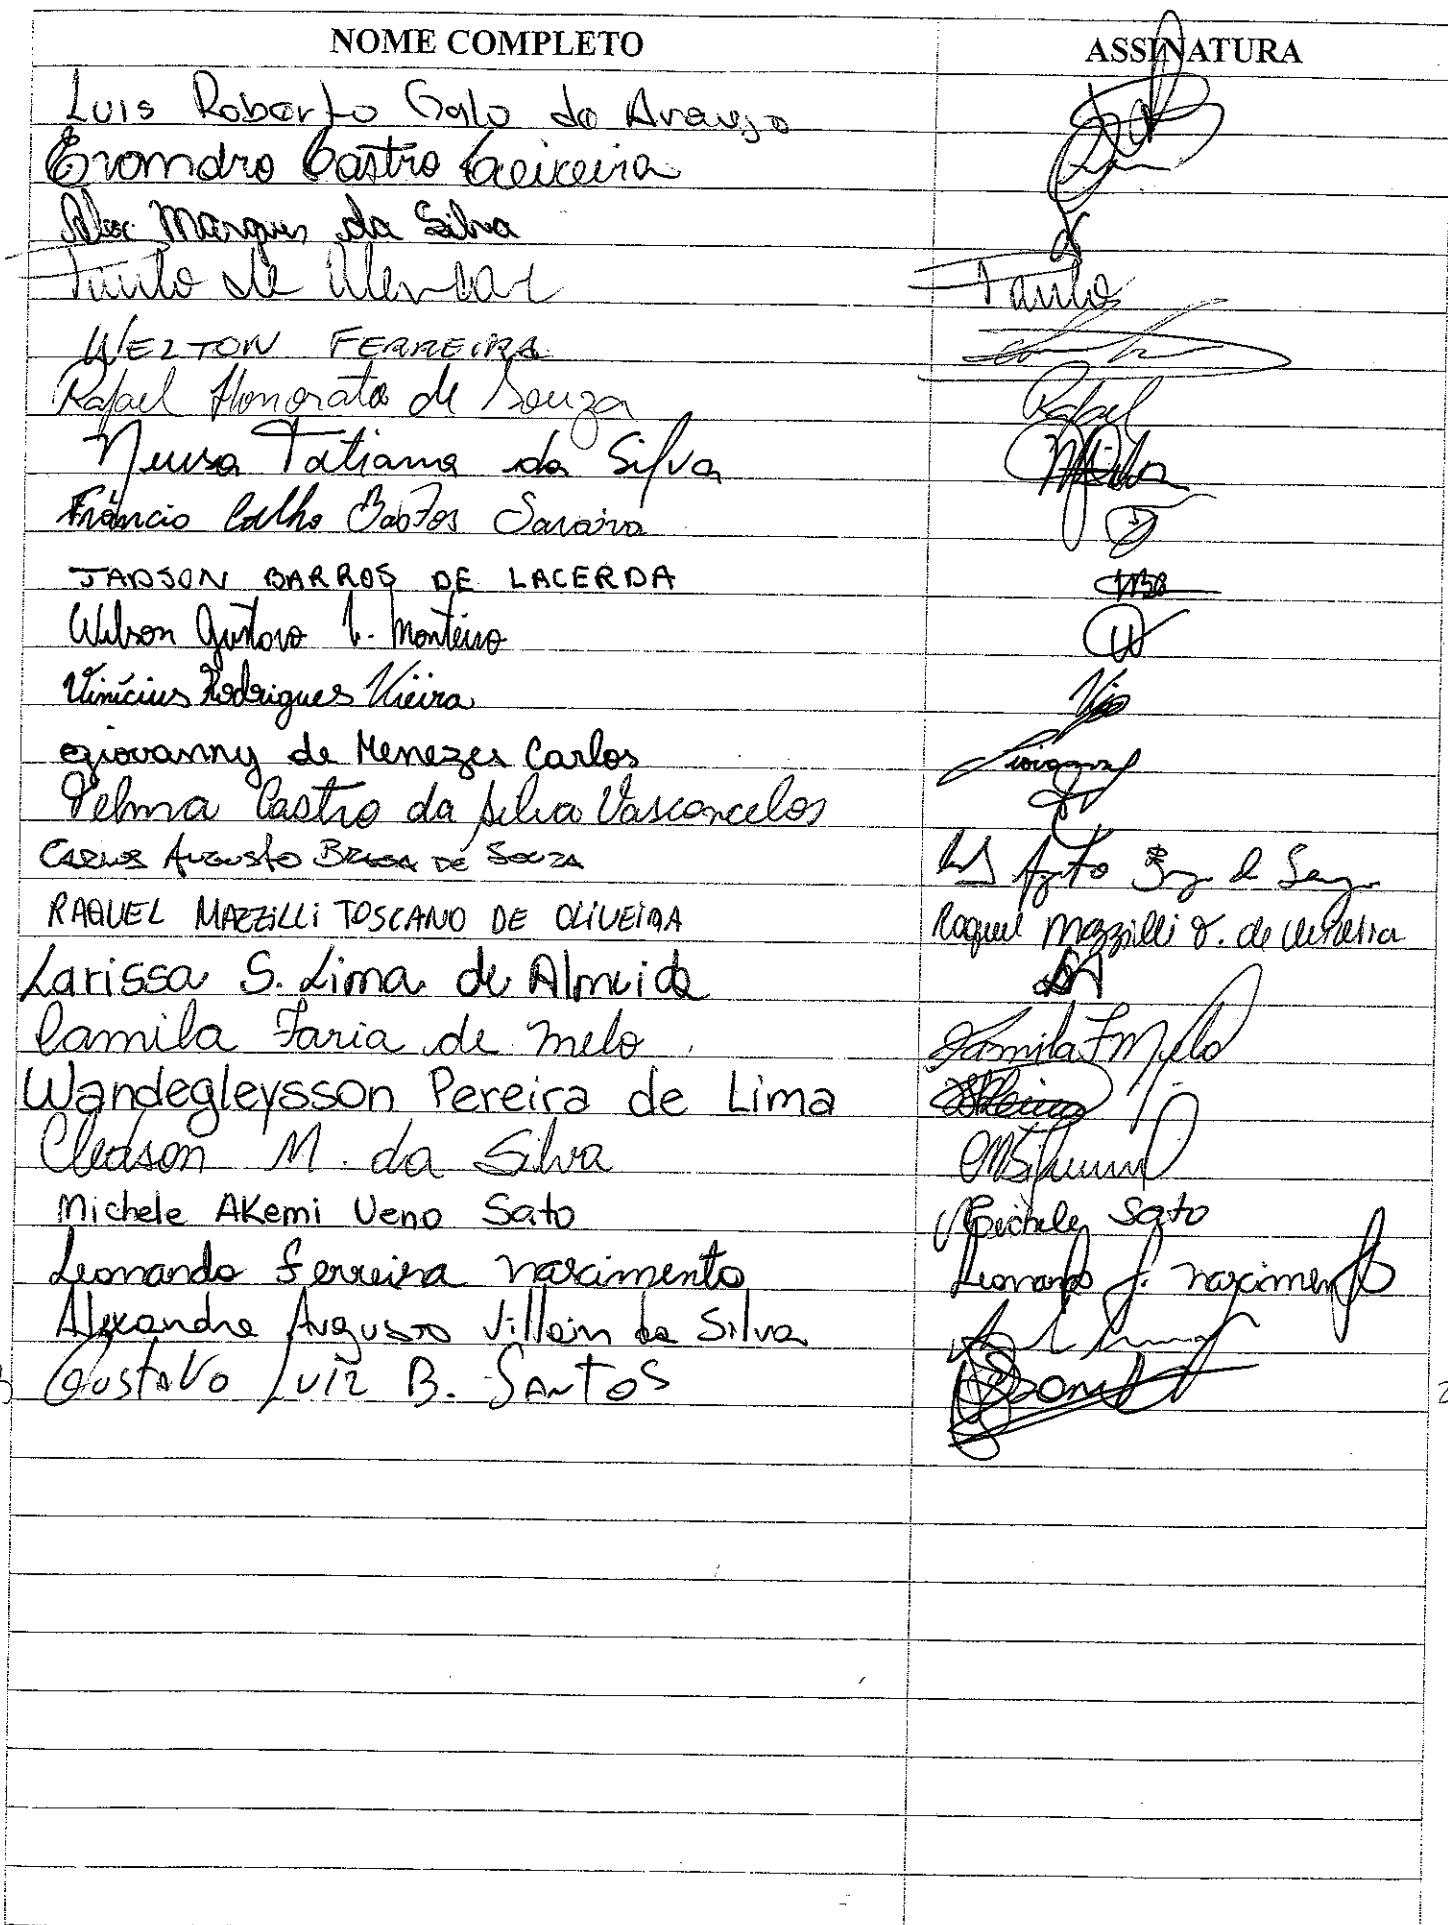 NOME COMPLETO ASSINATURA
Luis Roberto Galo de Araujo
Evandro Castro Teixeira
Alex Marques da Silva
Paulo de Alencar Paulo
WELTON FERREIRA
Rafael Honorato de Souza Rafael
Neusa Tatiana da Silva
Francio Coelho Bastos Saraiva
JADSON BARROS DE LACERDA
Wilson Gustavo Monteiro
Vinícius Rodrigues Vieira
Giovanny de Menezes Carlos Giovanny
Telma Castro da Silva Vasconcelos
CARLOS AUGUSTO BRAGA DE SOUZA
RAQUEL MAZZILLI TOSCANO DE OLIVEIRA Raquel Mazzilli T. de Oliveira
Larissa S. Lima de Almeida
Camila Faria de Melo Camila F Melo
Wandegleysson Pereira de Lima
Cledson M. da Silva
Michele Akemi Ueno Sato Michele Sato
Leonardo Ferreira Nascimento Leonardo F. Nascimento
Alexandre Augusto Villain da Silva
Gustavo Luiz B. Santos